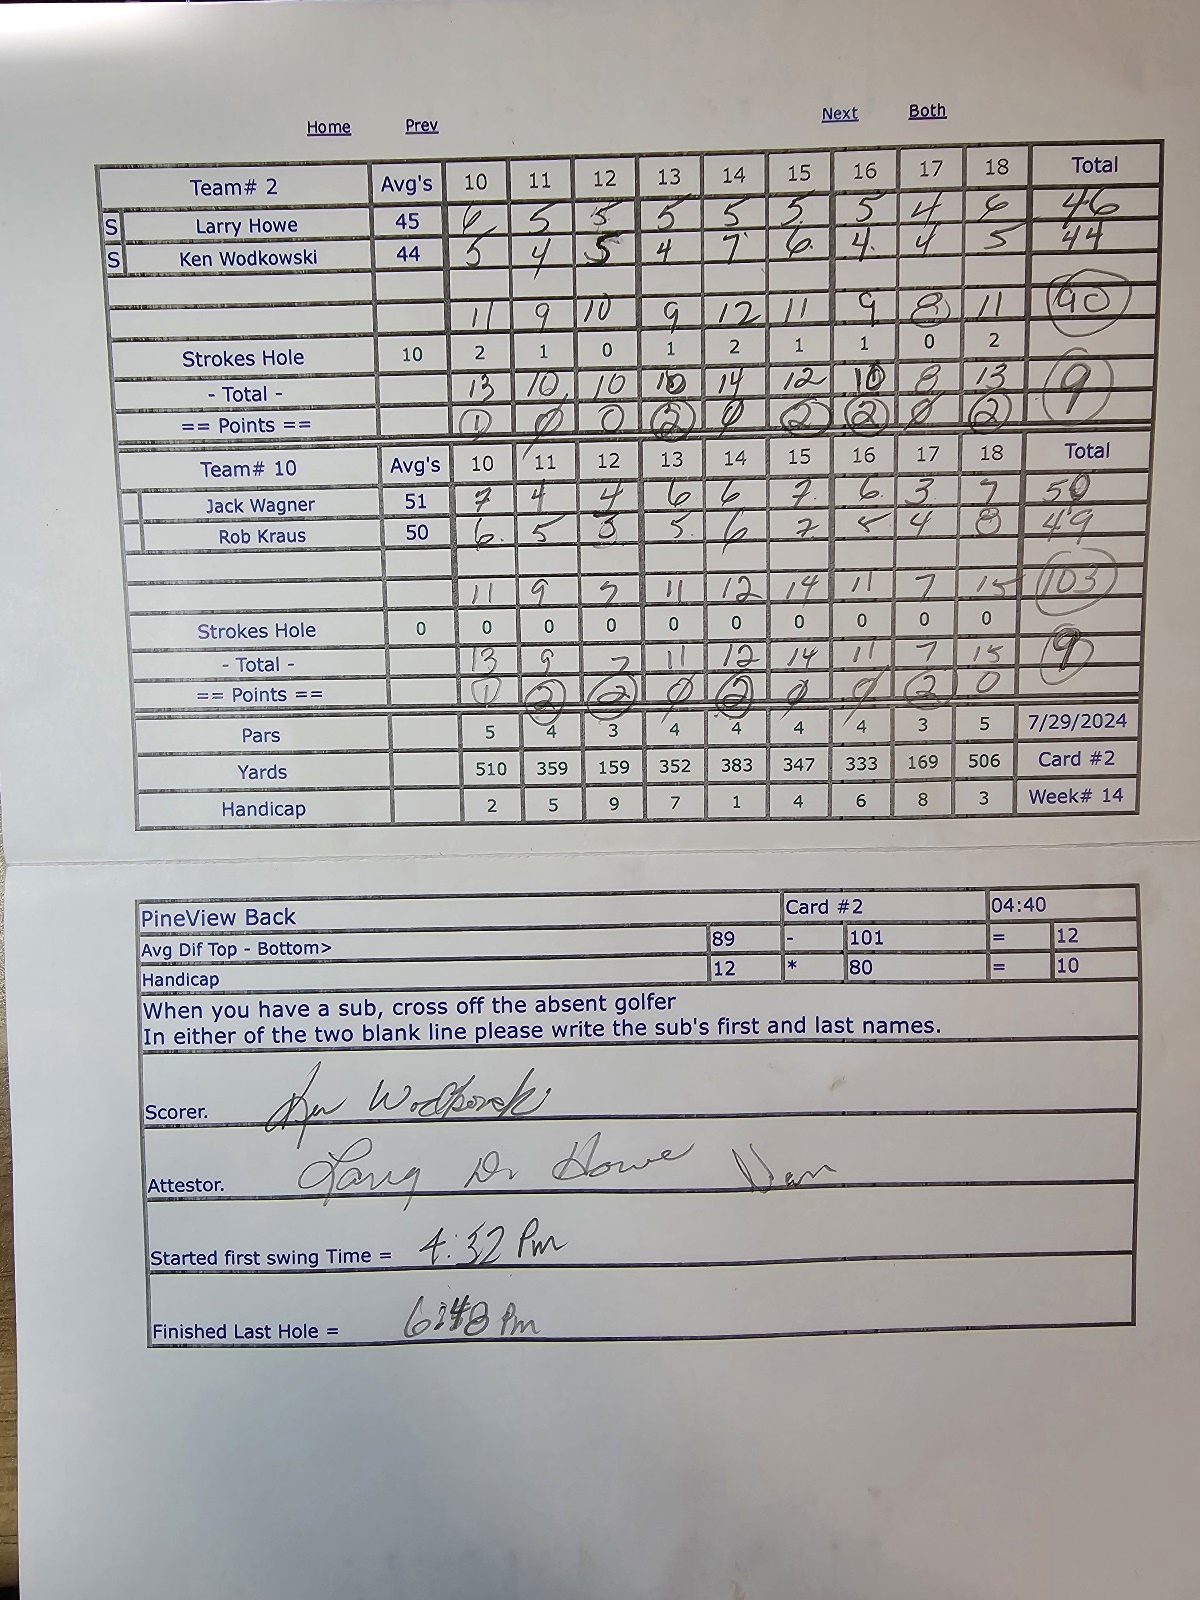 Home Prev Next Both
Team# 2 Avg's 10 11 12 13 14 15 16 17 18 Total
S Larry Howe 45 6 5 5 5 5 5 5 4 6 46
S Ken Wodkowski 44 5 4 5 4 7 6 4 4 5 44
11 9 10 9 12 11 9 8 11 90
Strokes Hole 10 2 1 0 1 2 1 1 0 2
- Total - 13 10 10 10 14 12 10 8 13 9
== Points == 1 0 0 2 0 2 2 0 2
Team# 10 Avg's 10 11 12 13 14 15 16 17 18 Total
Jack Wagner 51 7 4 4 6 6 7 6 3 7 50
Rob Kraus 50 6 5 3 5 6 7 5 4 8 49
11 9 7 11 12 14 11 7 15 103
Strokes Hole 0 0 0 0 0 0 0 0 0 0
- Total - 13 9 7 11 12 14 11 7 15 9
== Points == 1 2 2 0 2 0 0 2 0
Pars 5 4 3 4 4 4 4 3 5 7/29/2024
Yards 510 359 159 352 383 347 333 169 506 Card #2
Handicap 2 5 9 7 1 4 6 8 3 Week# 14
PineView Back Card #2 04:40
Avg Dif Top - Bottom> 89 - 101 = 12
Handicap 12 * 80 = 10
When you have a sub, cross off the absent golfer
In either of the two blank line please write the sub's first and last names.
Scorer. Ken Wodkowski
Attestor. Larry D. Howe
Started first swing Time = 4:32 Pm
Finished Last Hole = 6:48 Pm